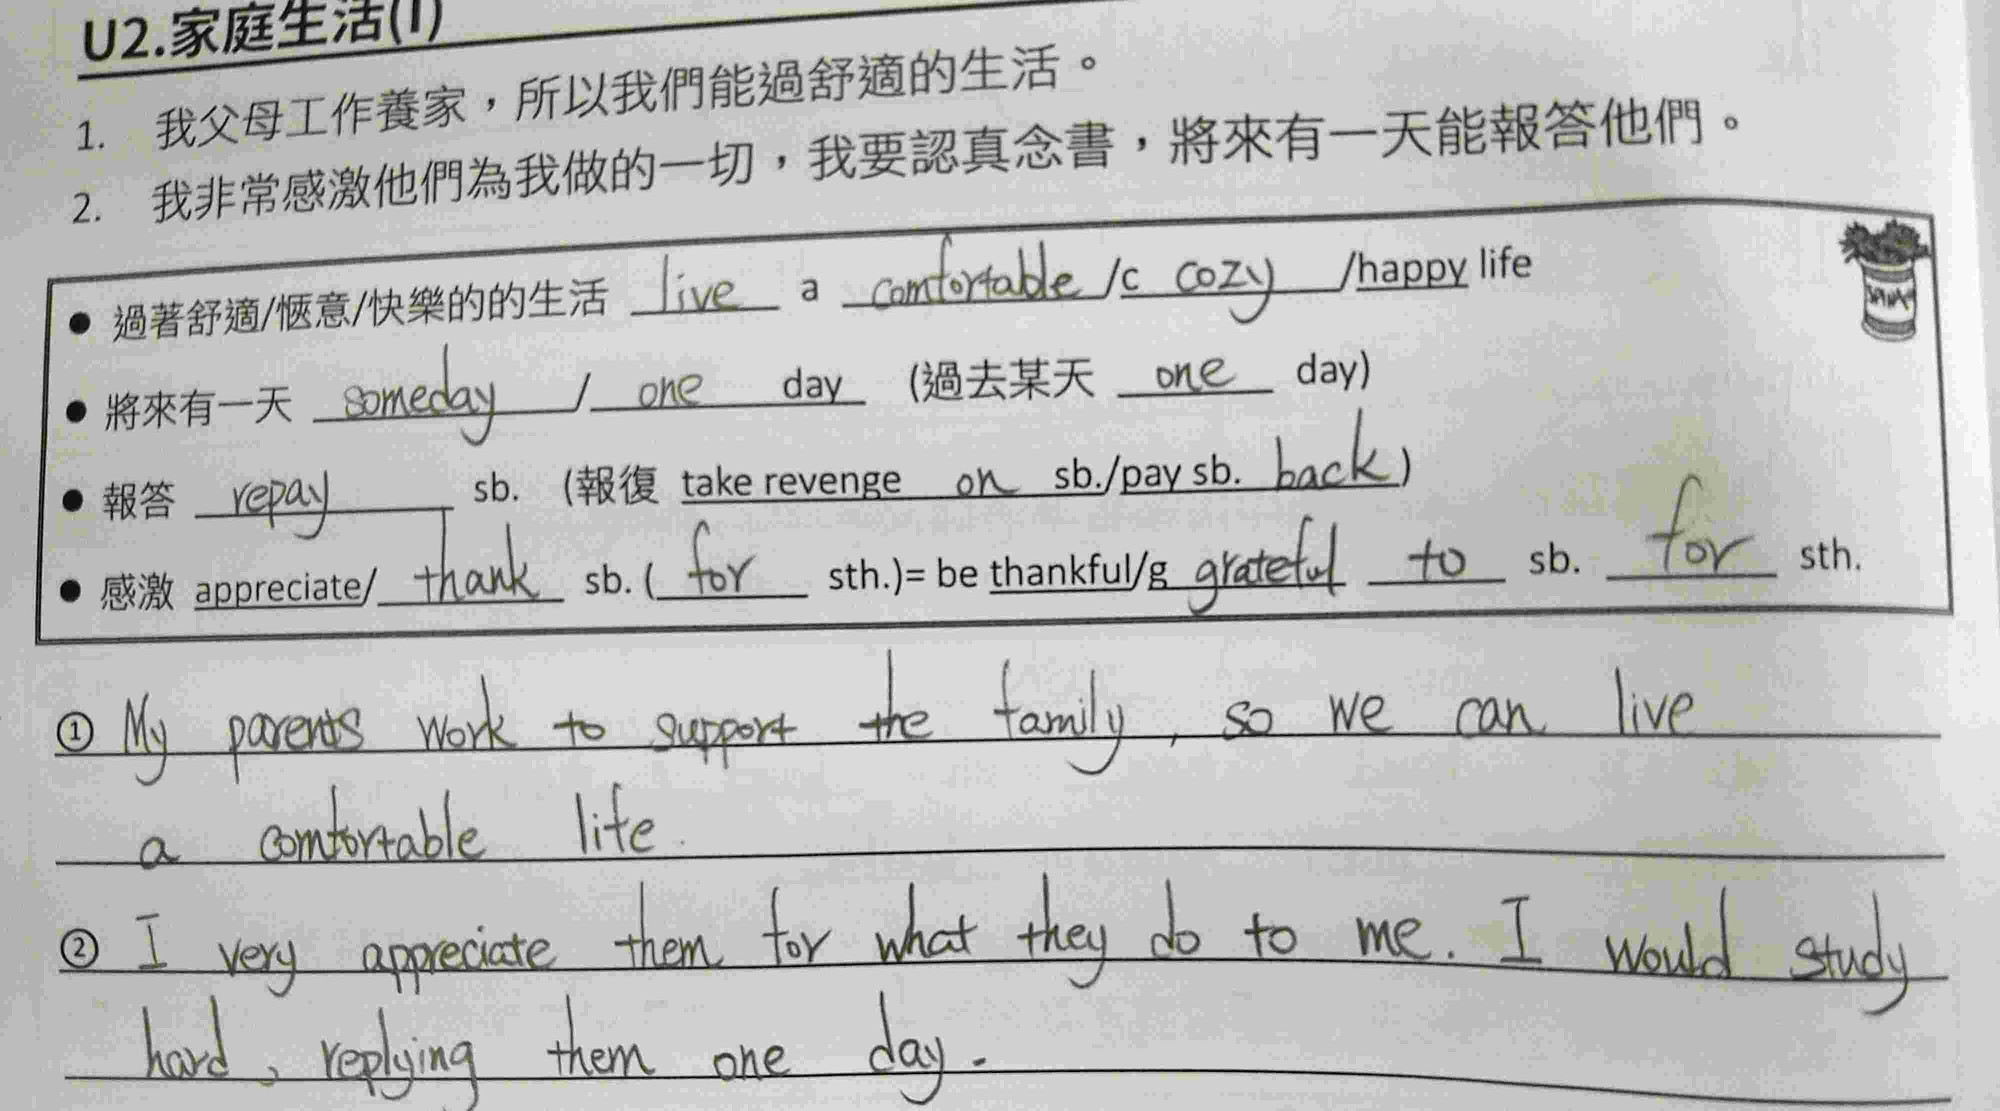 U2.家庭生活(I)
1. 我父母工作養家，所以我們能過舒適的生活。
2. 我非常感激他們為我做的一切，我要認真念書，將來有一天能報答他們。
● 過著舒適/愜意/快樂的的生活 live a comfortable /c cozy /happy life
● 將來有一天 someday / one day (過去某天 one day)
● 報答 repay sb. (報復 take revenge on sb./pay sb. back)
● 感激 appreciate/ thank sb. ( for sth.)= be thankful/g grateful to sb. for sth.
① My parents work to support the family, so we can live
a comfortable life.
② I very appreciate them for what they do to me. I would study
hard, replying them one day.